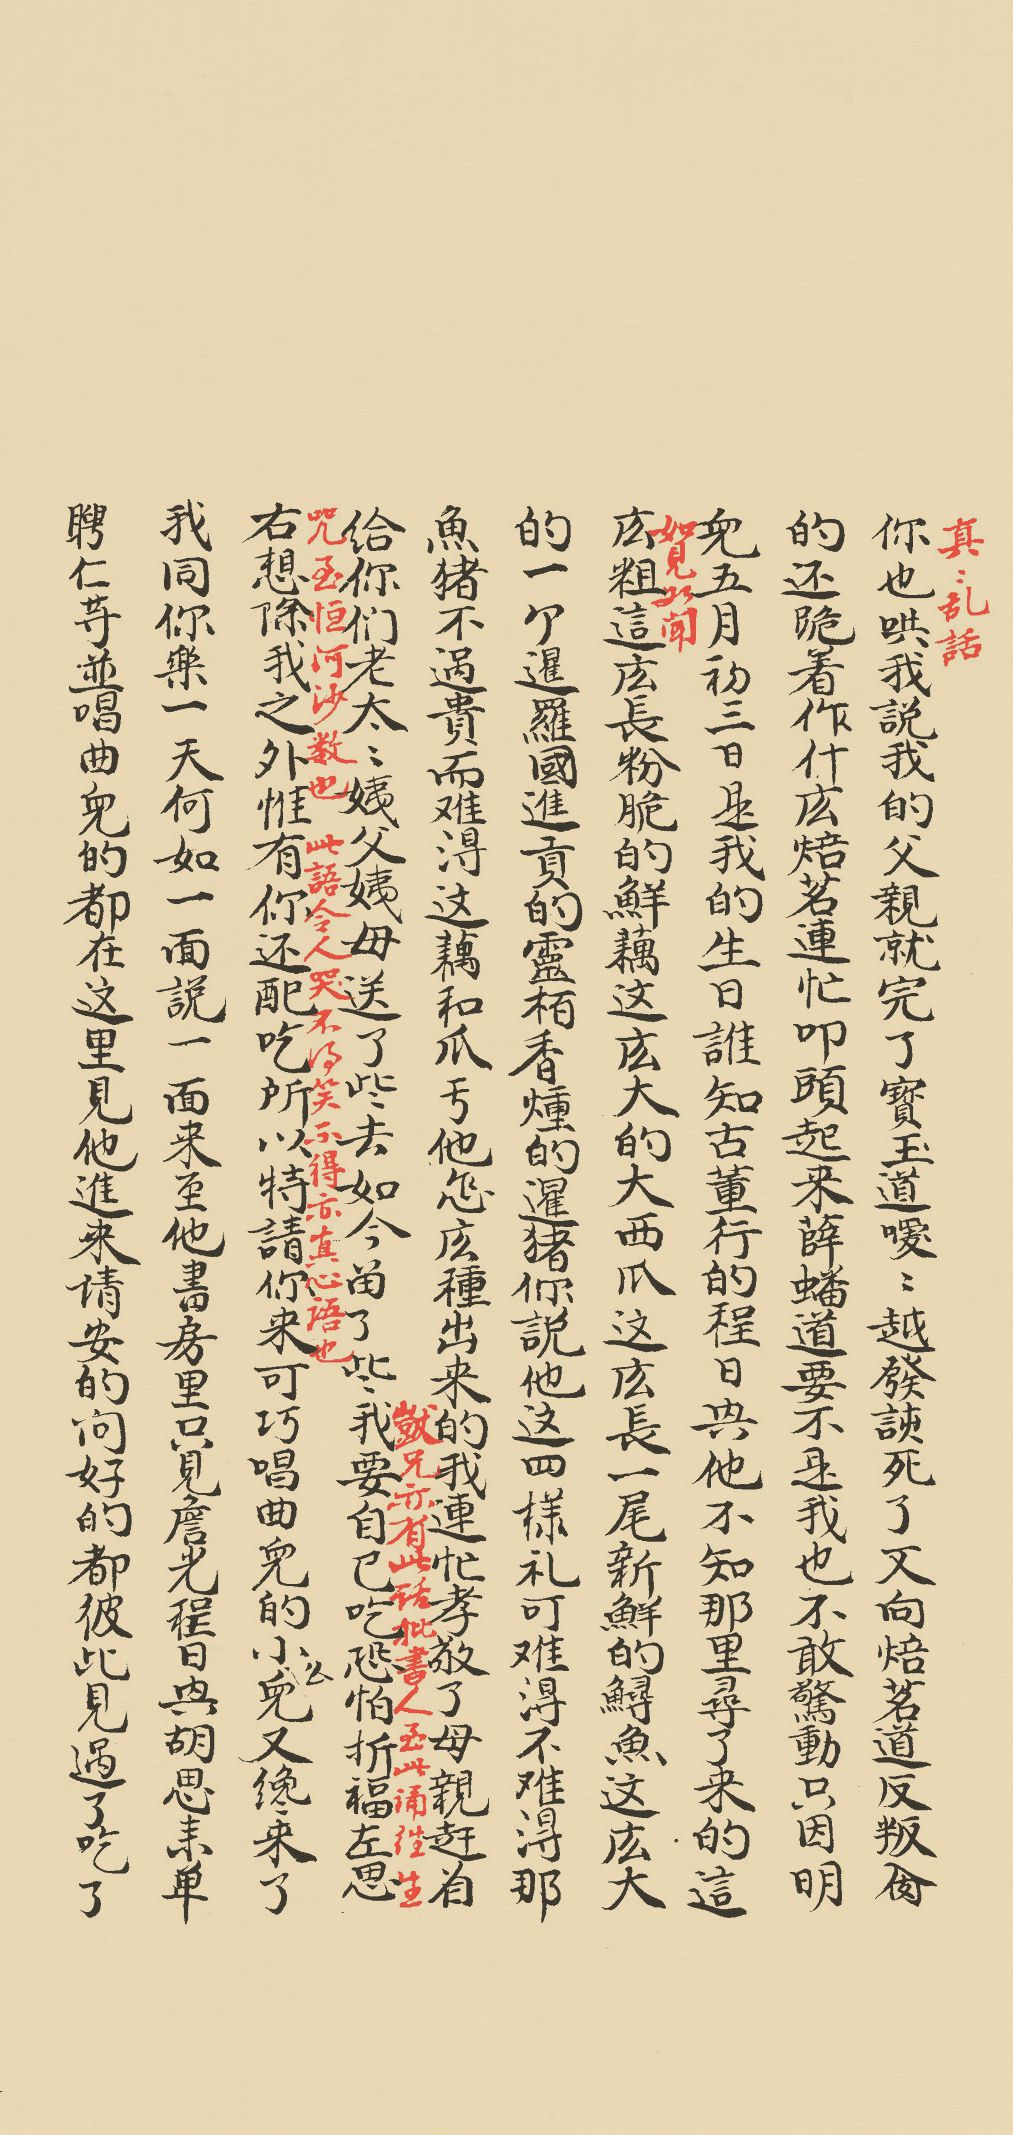 真〻乱話
你也哄我説我的父親就完了寳玉道嗳〻越發諛死了又向焙茗道反叛肏
的还跪着作什庅焙茗連忙叩頭起来薛蟠道要不是我也不敢驚動只因明
兒五月初三日是我的生日誰知古董行的程日興他不知那里尋了来的這
如見如聞
庅粗這庅長粉脆的鮮藕这庅大的大西瓜这庅長一尾新鮮的鱘魚这庅大
的一个暹羅國進貢的靈柏香燻的暹猪你説他这四樣礼可难淂不难淂那
魚猪不過貴而难淂这藕和瓜亏他怎庅種出来的我連忙孝敬了母親赶着
獃兄亦有此話批書人至此誦往生
给你们老太〻姨父姨母送了些去如今留了些〻我要自己吃恐怕折福左思
咒至恒河沙数也 此語令人哭不得笑不得亦真心語也
右想除我之外惟有你还配吃所以特請你来可巧唱曲兒的小公兒又纔来了
我同你樂一天何如一面説一面来至他書房里只見詹光程日興胡思来单
聘仁等並唱曲兒的都在这里見他進来请安的问好的都彼此見過了吃了